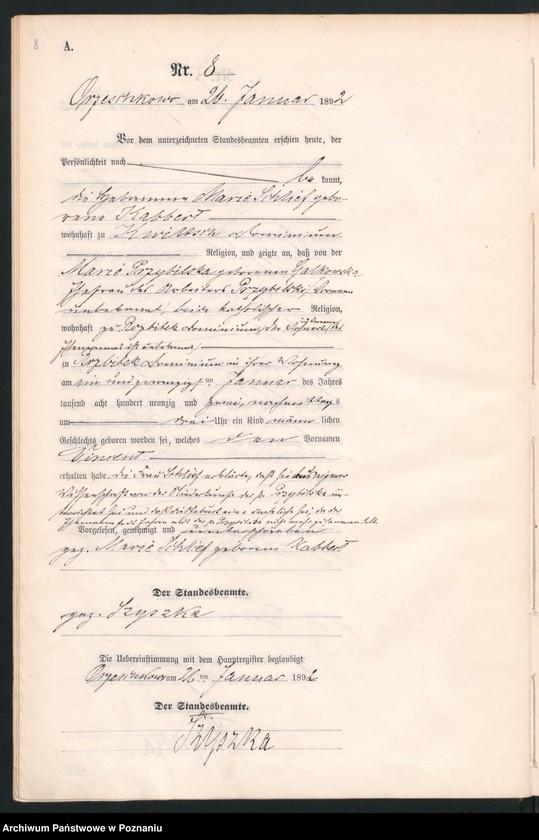 8
A.
Nr. 8
Orzeschkowo am 26. Januar 1892
Vor dem unterzeichneten Standesbeamten erschien heute, der
Persönlichkeit nach
be kannt,
die Hebamme Marie Schlief gebo-
rene Kabbert
wohnhaft zu Kwiltsch Dominium
Religion, und zeigte an, daß von der
Marie Przybilska, geborenen Galkowska
Ehefrau des Arbeiters Przybilski, Vornamen
unbekannt, beide katholischer Religion,
wohnhaft zu Rozbitek Dominium, der Wohnort des
Ehemannes ist unbekannt,
zu Rozbitek Dominium in ihrer Wohnung
am ein und zwanzigsten Januar des Jahres
tausend acht hundert neunzig und zwei, nachmittags
um drei Uhr ein Kind männ lichen
Geschlechts geboren worden sei, welches den Vornamen
Vincent
erhalten habe. Die Frau Schlief erklärte, daß sie aus eigener
Wissenschaft von der Niederkunft der p. Przybilska un-
terrichtet sei und daß die Geburt eine uneheliche sei, da der
Ehemann seit Jahren mit der p. Przybilska nicht mehr zusammen lebt.
Vorgelesen, genehmigt und unterschrieben
gez. Marie Schlief geborene Kabbert
Der Standesbeamte.
gez. Szyszka
Die Uebereinstimmung mit dem Hauptregister beglaubigt
Orzeschkowo am 26 ten Januar 1892
Der Standesbeamte.
Szyszka
Archiwum Państwowe w Poznaniu